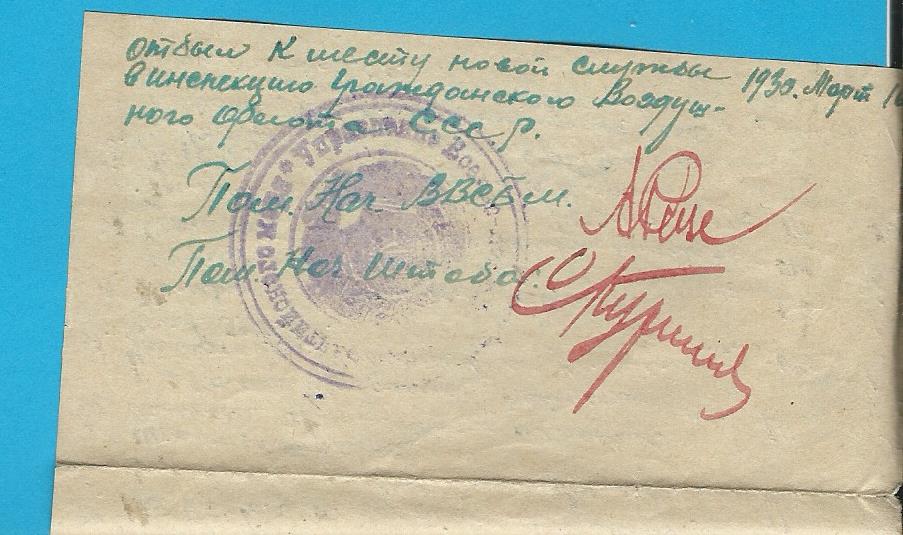 отбыл к месту новой службы 1930. Март
в инспекцию Гражданского Воздуш-
ного Флота С.С.С.Р.
Пом. Нач ВВСБм.
Пом Нач Штаба.
Управление Во